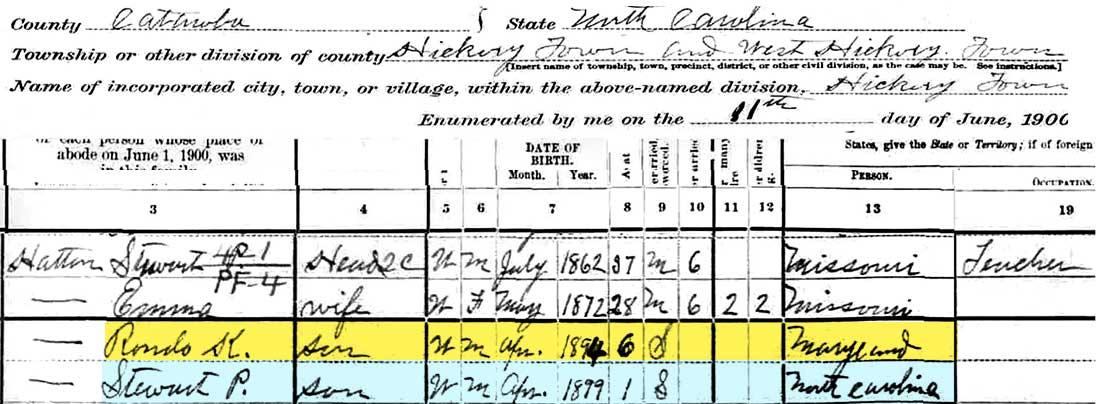 County Catawba } State North Carolina
Township or other division of county Hickory Town and West Hickory Town
[Insert name of township, town, precinct, district, or other civil division, as the case may be. See instructions.]
Name of incorporated city, town, or village, within the above-named division, Hickory Town
Enumerated by me on the 11th day of June, 1900
of each person whose place of
abode on June 1, 1900, was
in this family.
DATE OF BIRTH. States, give the State or Territory; if of foreign
Month. Year. PERSON. OCCUPATION.
3 4 5 6 7 8 9 10 11 12 13 19
Hatton Stewart Head W M July 1862 37 M 6 Missouri Teacher
PF-4
— Emma wife W F May 1872 28 M 6 2 2 Missouri
— Rondo K. son W M Apr. 1894 6 S Maryland
— Stewart P. son W M Apr. 1899 1 S North Carolina